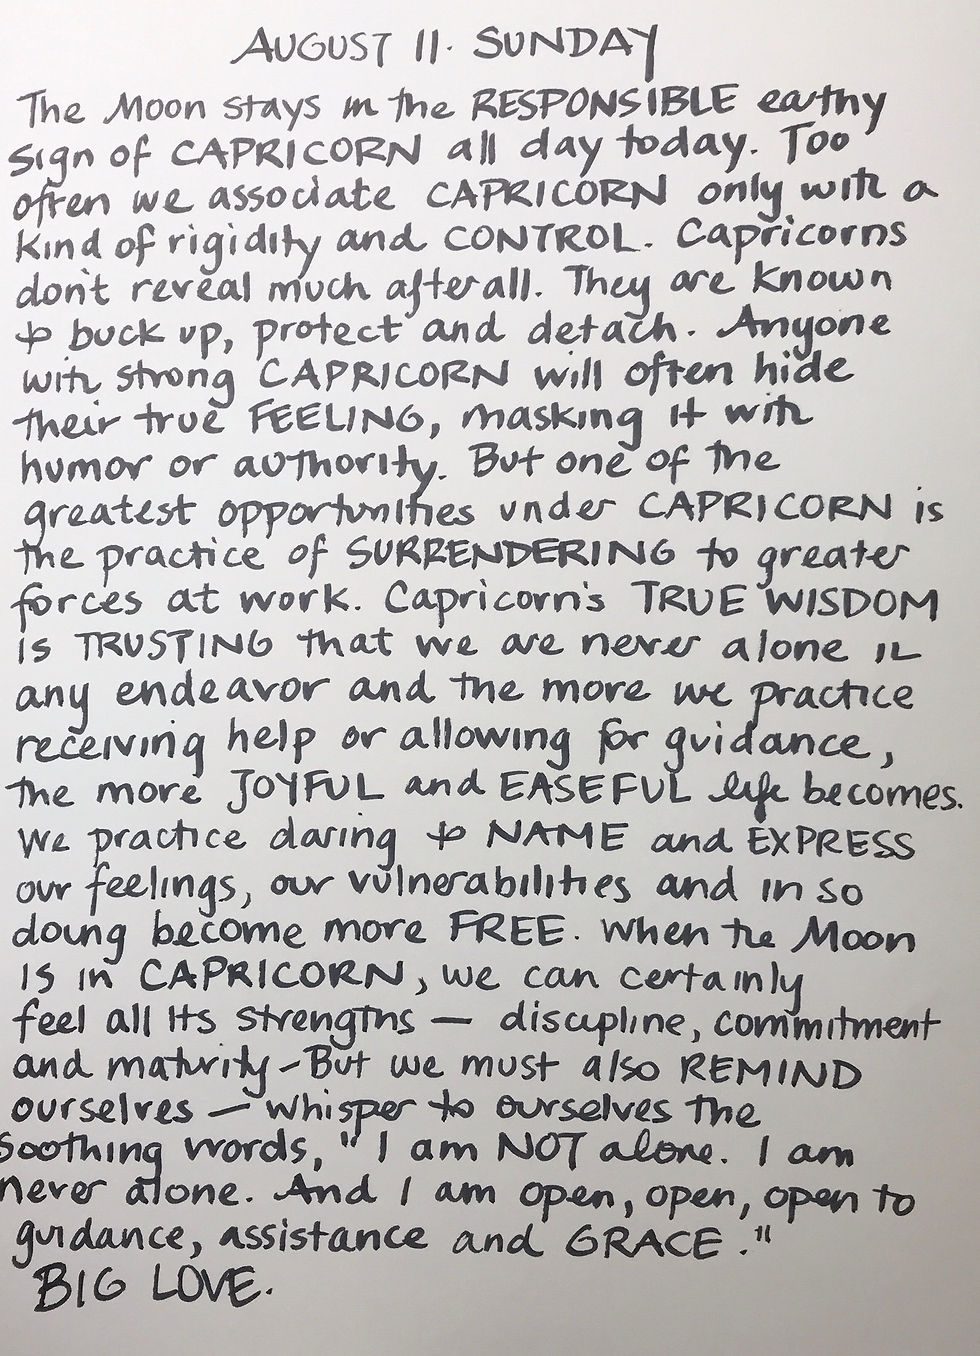 AUGUST 11. SUNDAY
The Moon stays in the RESPONSIBLE earthy
sign of CAPRICORN all day today. Too
often we associate CAPRICORN only with a
kind of rigidity and CONTROL. Capricorns
don't reveal much afterall. They are known
to buck up, protect and detach. Anyone
with strong CAPRICORN will often hide
their true FEELING, masking it with
humor or authority. But one of the
greatest opportunities under CAPRICORN is
the practice of SURRENDERING to greater
forces at work. Capricorn's TRUE WISDOM
is TRUSTING that we are never alone in
any endeavor and the more we practice
receiving help or allowing for guidance,
the more JOYFUL and EASEFUL life becomes.
We practice daring to NAME and EXPRESS
our feelings, our vulnerabilities and in so
doing become more FREE. When the Moon
is in CAPRICORN, we can certainly
feel all its strengths — discipline, commitment
and maturity - But we must also REMIND
ourselves — whisper to ourselves the
soothing words, "I am NOT alone. I am
never alone. And I am open, open, open to
guidance, assistance and GRACE."
BIG LOVE.